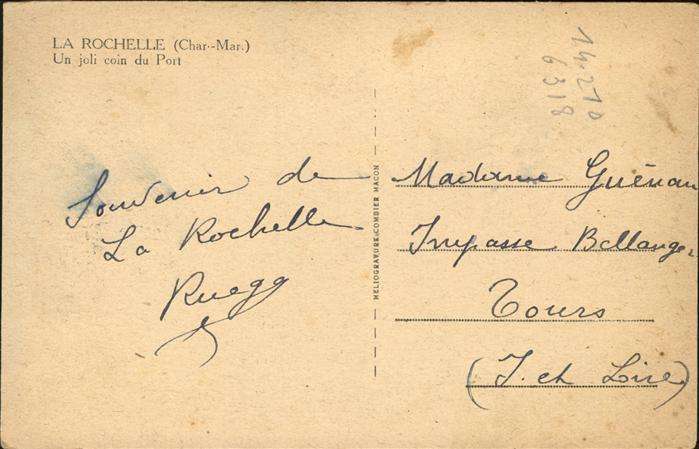 LA ROCHELLE (Char.-Mar.)
Un joli coin du Port
Souvenir de
La Rochelle
Ruegg
HELIOGRAVURE COMBIER MACON
14.270
6318
Madame
Impasse Bellanger
Tours
(I. et Loire)